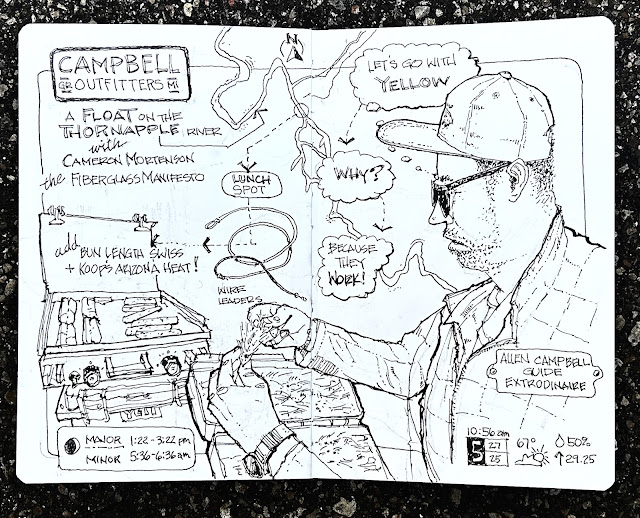 CAMPBELL
GR OUTFITTERS MI
A FLOAT ON THE
THORNAPPLE RIVER
with
CAMERON MORTENSON
the FIBERGLASS MANIFESTO
N
LET'S GO WITH
YELLOW
WHY?
BECAUSE
THEY
WORK!
LUNCH
SPOT
WIRE
LEADERS
add BUN LENGTH SWISS
+ KOOPS ARIZONA HEAT!
ALLEN CAMPBELL
GUIDE
EXTRODINAIRE
MAJOR 1:22-3:22 pm
MINOR 5:36-6:36 am
10:56 am
5 27
25
67° 50%
29.25